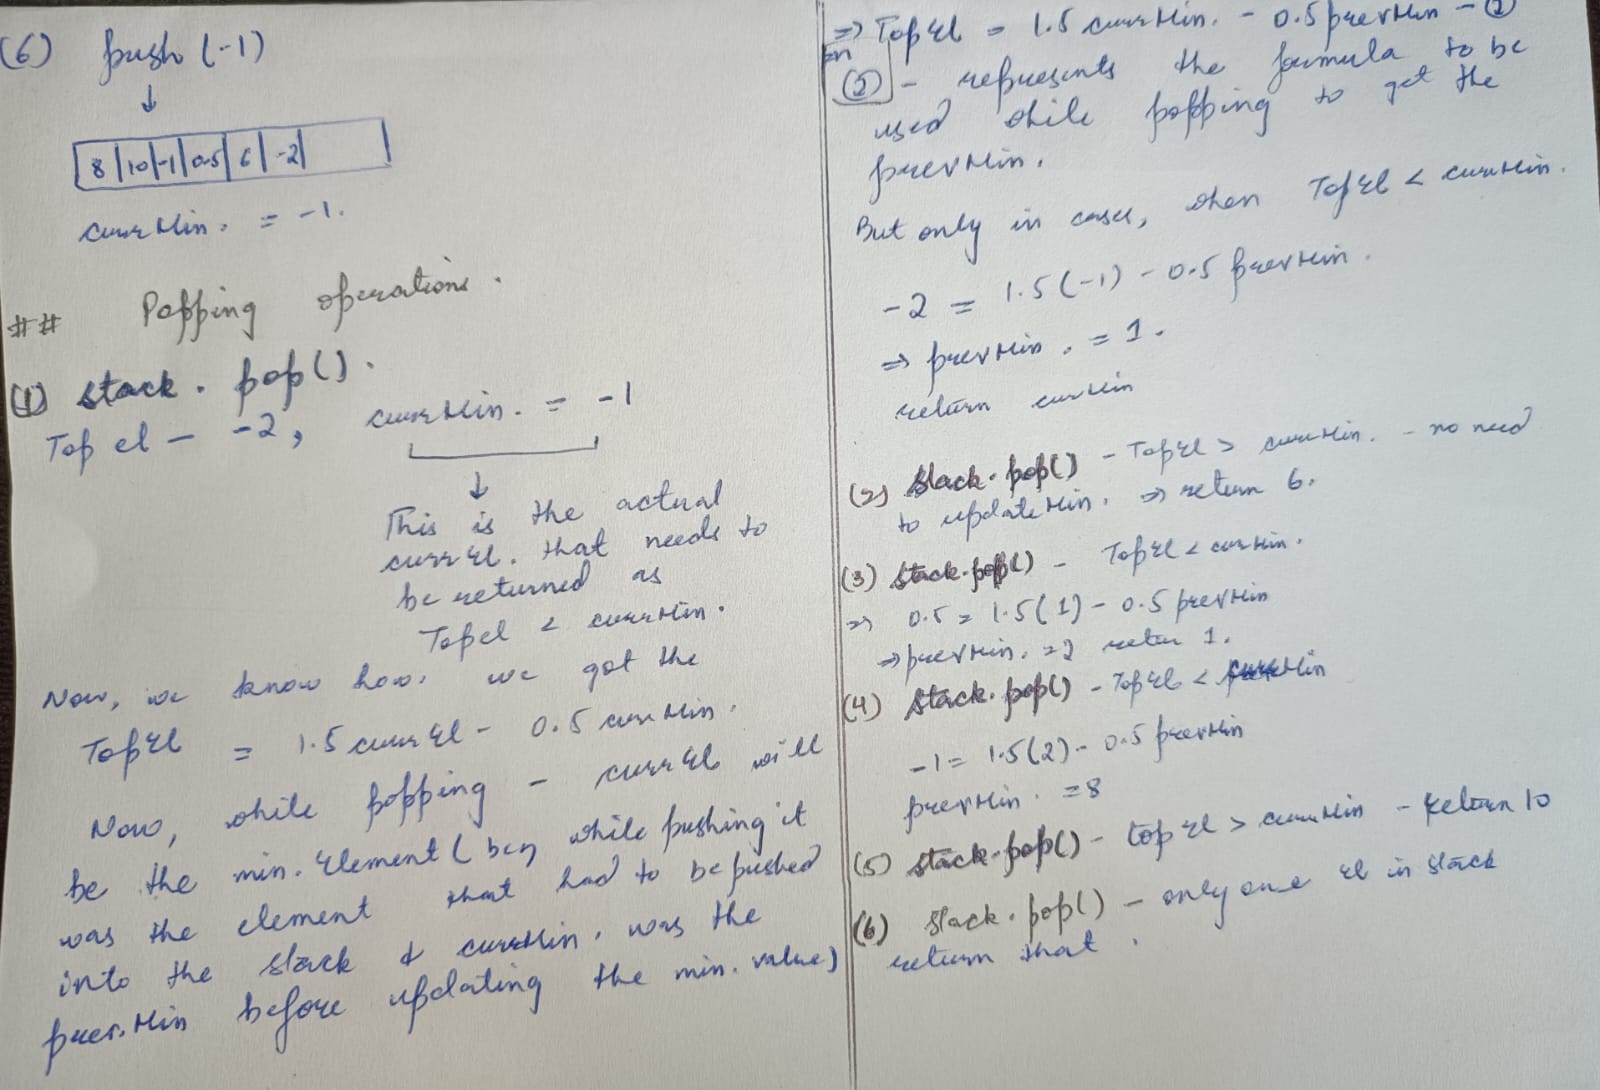 (6) push (-1)
↓
8 | 10 | -1 | 0.5 | 6 | -2 |
currMin. = -1.
## Popping operations.
(1) stack. pop().
Top el - -2, currMin. = -1
↓
This is the actual
currEl. that needs to
be returned as
Topel < currMin.
Now, we know how. we got the
TopEl = 1.5 currEl - 0.5 currMin.
Now, while popping - currEl will
be the min. Element ( bcz while pushing it
was the element that had to be pushed
into the stack & currMin. was the
prev.Min before updating the min. value)
⇒ TopEl = 1.5 currMin. - 0.5 prevMin - (2)
En
(2) - represents the formula to be
used while popping to get the
prevMin.
But only in cases, when TopEl < currMin.
-2 = 1.5 (-1) - 0.5 prevMin.
⇒ prevMin. = 1.
return currMin
(2) Stack. pop() - TopEl > currMin. - no need
to updateMin. ⇒ return 6.
(3) Stack.pop() - TopEl < currMin.
⇒ 0.5 = 1.5(1) - 0.5 prevMin
⇒ prevMin. = 2 retur 1.
(4) stack. pop() - TopEl < Min
-1 = 1.5(2) - 0.5 prevMin
prevMin. = 8
(5) stack.pop() - top el > currMin - Return 10
(6) Stack. pop() - only one el in stack
return that.